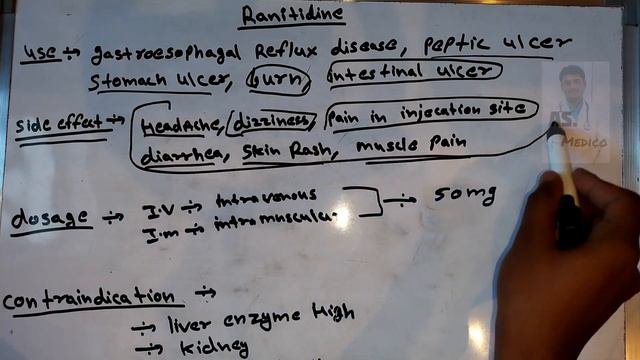 Ranitidine
use ÷ gastroesophagal Reflux disease, peptic ulcer
stomach ulcer, burn, intestinal ulcer
side effect ÷ HeadAche, dizziness, Pain in injecation site
diarrhea, Skin Rash, muscle Pain
AS.
Medico
dosage ÷ I.V ÷ intravenous
I.m ÷ intromuscular
÷ 50mg
contraindication ÷
÷ liver enzyme High
÷ kidney